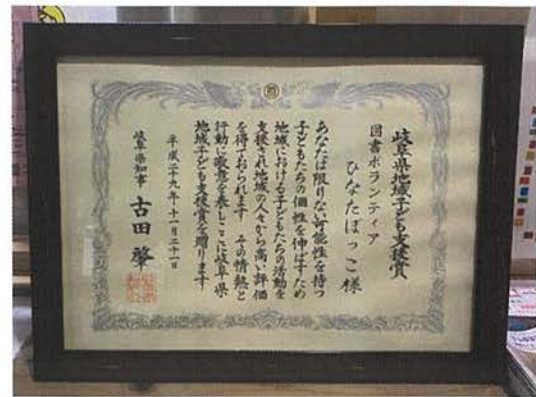 岐阜県地域子ども支援賞
図書ボランティア
ひなたぼっこ 様
あなたは限りない可能性を持つ
子どもたちの個性を伸ばすため
地域における子どもたちの活動を
支援され地域の人々から高い評価
を得ておられます その情熱と
行動に敬意を表しここに岐阜県
地域子ども支援賞を贈ります
平成二十九年十一月二十一日
岐阜県知事 古田 肇